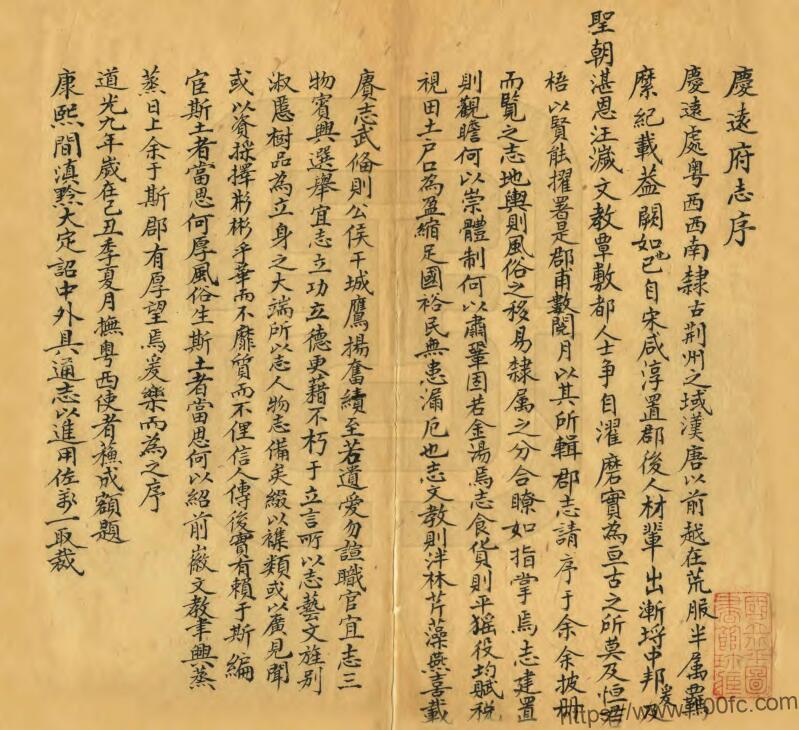 慶遠府志序
慶遠處粵西西南隸古荆州之域漢唐以前越在荒服半属羈
縻紀載葢闕如也已自宋咸淳置郡後人材輩出漸埒中邦爰及
聖朝湛恩汪濊文教覃敷都人士爭自濯磨實為亘古之所莫及恒君
梧以賢能擢署是郡甫數閱月以其所輯郡志請序于余余披册
而覽之志地輿則風俗之移易隸属之分合瞭如指掌焉志建置
則觀瞻何以崇體制何以肅鞏固若金湯焉志食貨則平猺役均賦税
視田土戶口為盈縮足國裕民無患漏卮也志文教則泮林芹藻燕喜載
賡志武俻則公侯干城鷹揚奮績至若遺愛勿諠職官宜志三
物賓興選舉宜志立功立德更藉不朽于立言所以志藝文旌别
淑慝樹品為立身之大端所以志人物志備矣綴以襍類或以廣見聞
或以資採擇彬彬乎華而不靡質而不俚信今傳後實有賴于斯編
官斯土者當思何厚風俗生斯土者當思何以紹前徽文教聿興蒸
蒸日上余于斯郡有厚望焉爰樂而為之序
道光九年歲在己丑季夏月撫粵西使者蘓成額題
康熙間滇黔大定詔中外具通志以進用佐
一取裁
https://www.
00fc.com